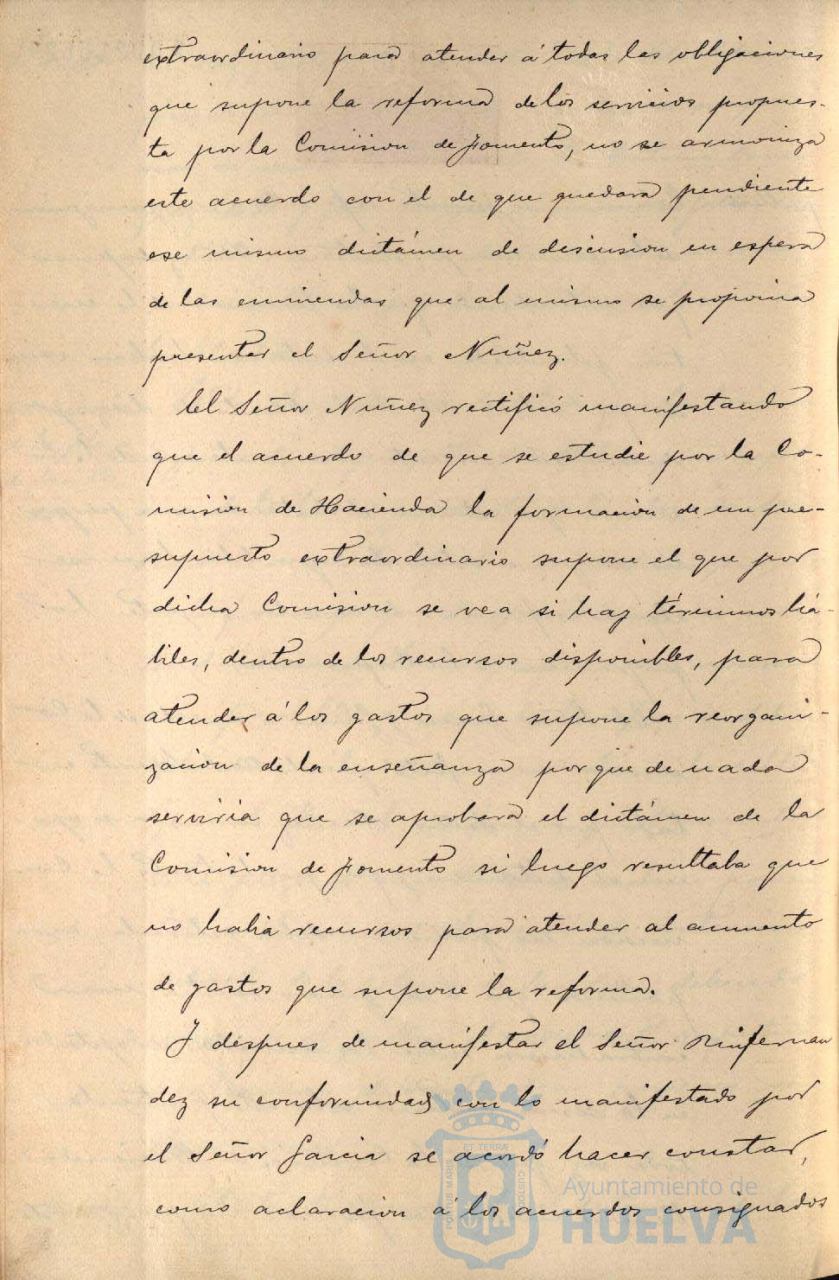 extraordinario para atender á todas las obligaciones
que supone la reforma de los servicios propues-
ta por la Comision de Fomento, no se armoniza
este acuerdo con el de que quedara pendiente
ese mismo dictámen de discusion en espera
de las enmiendas que al mismo se proponia
presentar el Señor Nuñez.
El Señor Nuñez rectificó manifestando
que el acuerdo de que se estudie por la Co-
mision de Hacienda la formacion de un pre-
supuesto extraordinario supone el que por
dicha Comision se vea si hay términos há-
biles, dentro de los recursos disponibles, para
atender á los gastos que supone la reorgani-
zacion de la enseñanza por que de nada
serviria que se aprobara el dictámen de la
Comision de Fomento si luego resultaba que
no habia recursos para atender al aumento
de gastos que supone la reforma.
Y despues de manifestar el Señor Rinfernan
dez su conformidad con lo manifestado por
el Señor Garcia se acordó hacer constar,
como aclaracion á los acuerdos consignados
Ayuntamiento de
HUELVA